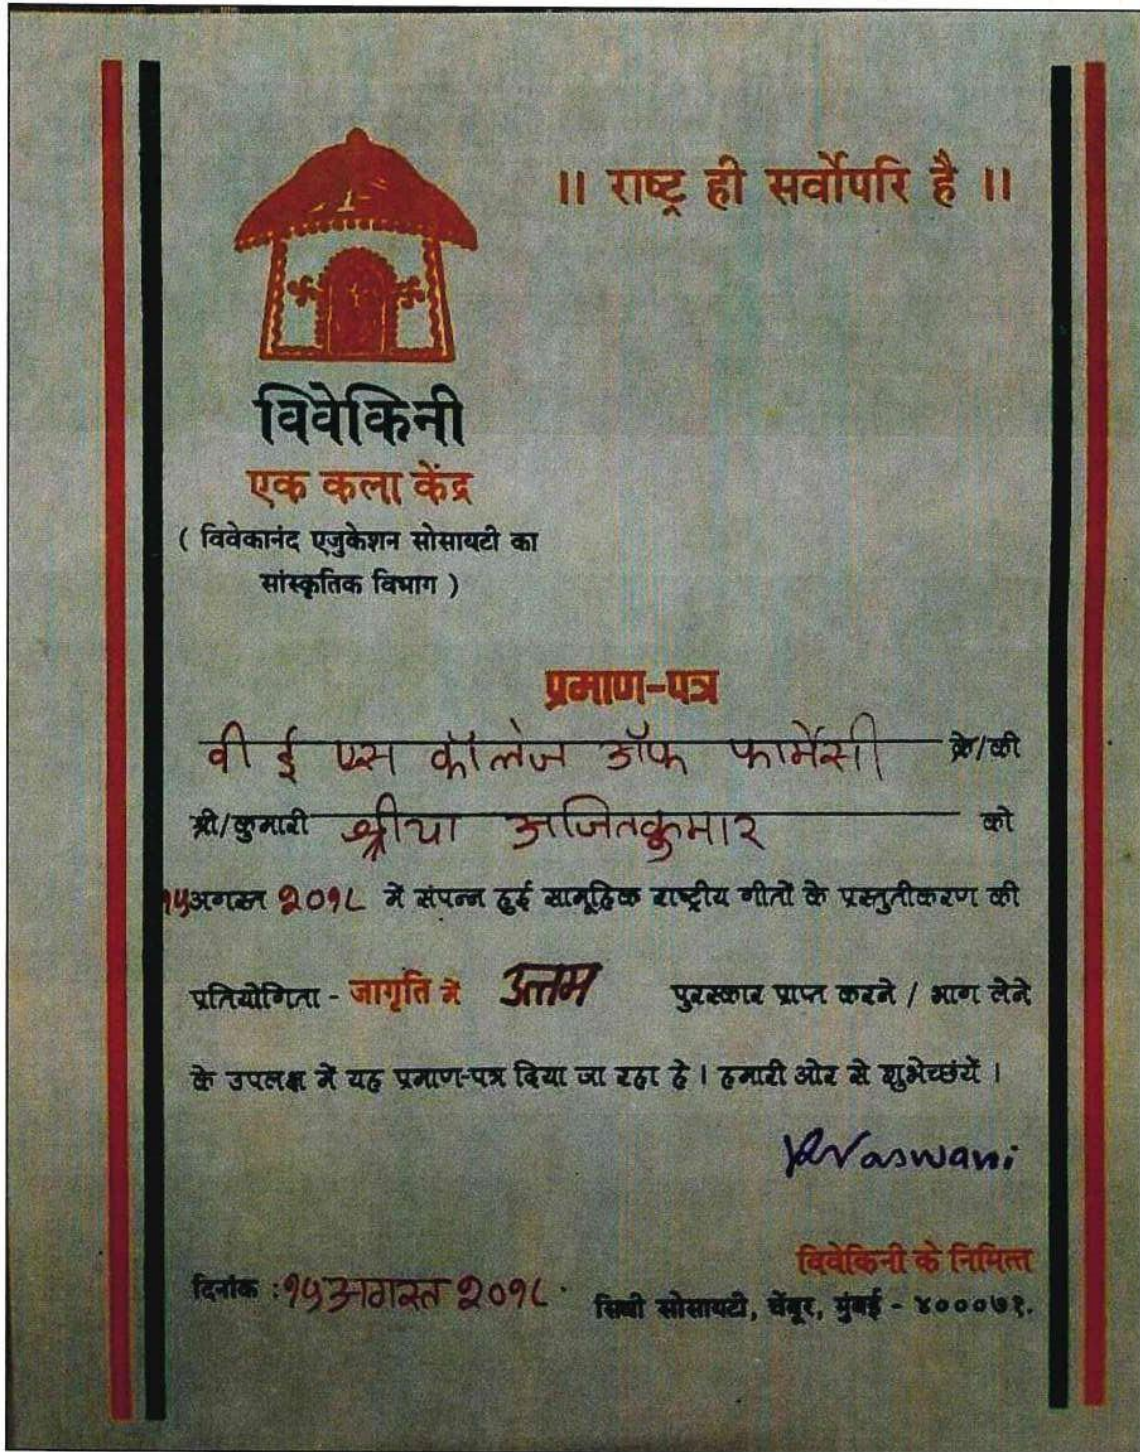 ॥ राष्ट्र ही सर्वोपरि है ॥
विवेकिनी
एक कला केंद्र
( विवेकानंद एजुकेशन सोसायटी का
सांस्कृतिक विभाग )
प्रमाण-पत्र
वी ई एस कॉलेज ऑफ फार्मेसी के/की
श्री/कुमारी श्रीया अजितकुमार को
१५अगस्त २०१८ में संपन्न हुई सामूहिक राष्ट्रीय गीतों के प्रस्तुतीकरण की
प्रतियोगिता - जागृति में उत्तम पुरस्कार प्राप्त करने / भाग लेने
के उपलक्ष में यह प्रमाण-पत्र दिया जा रहा है । हमारी ओर से शुभेच्छंयें ।
Vaswani
विवेकिनी के निमित्त
दिनांक : १५ अगस्त २०१८ .
सिंधी सोसायटी, चेंबूर, मुंबई - ४०००७१.